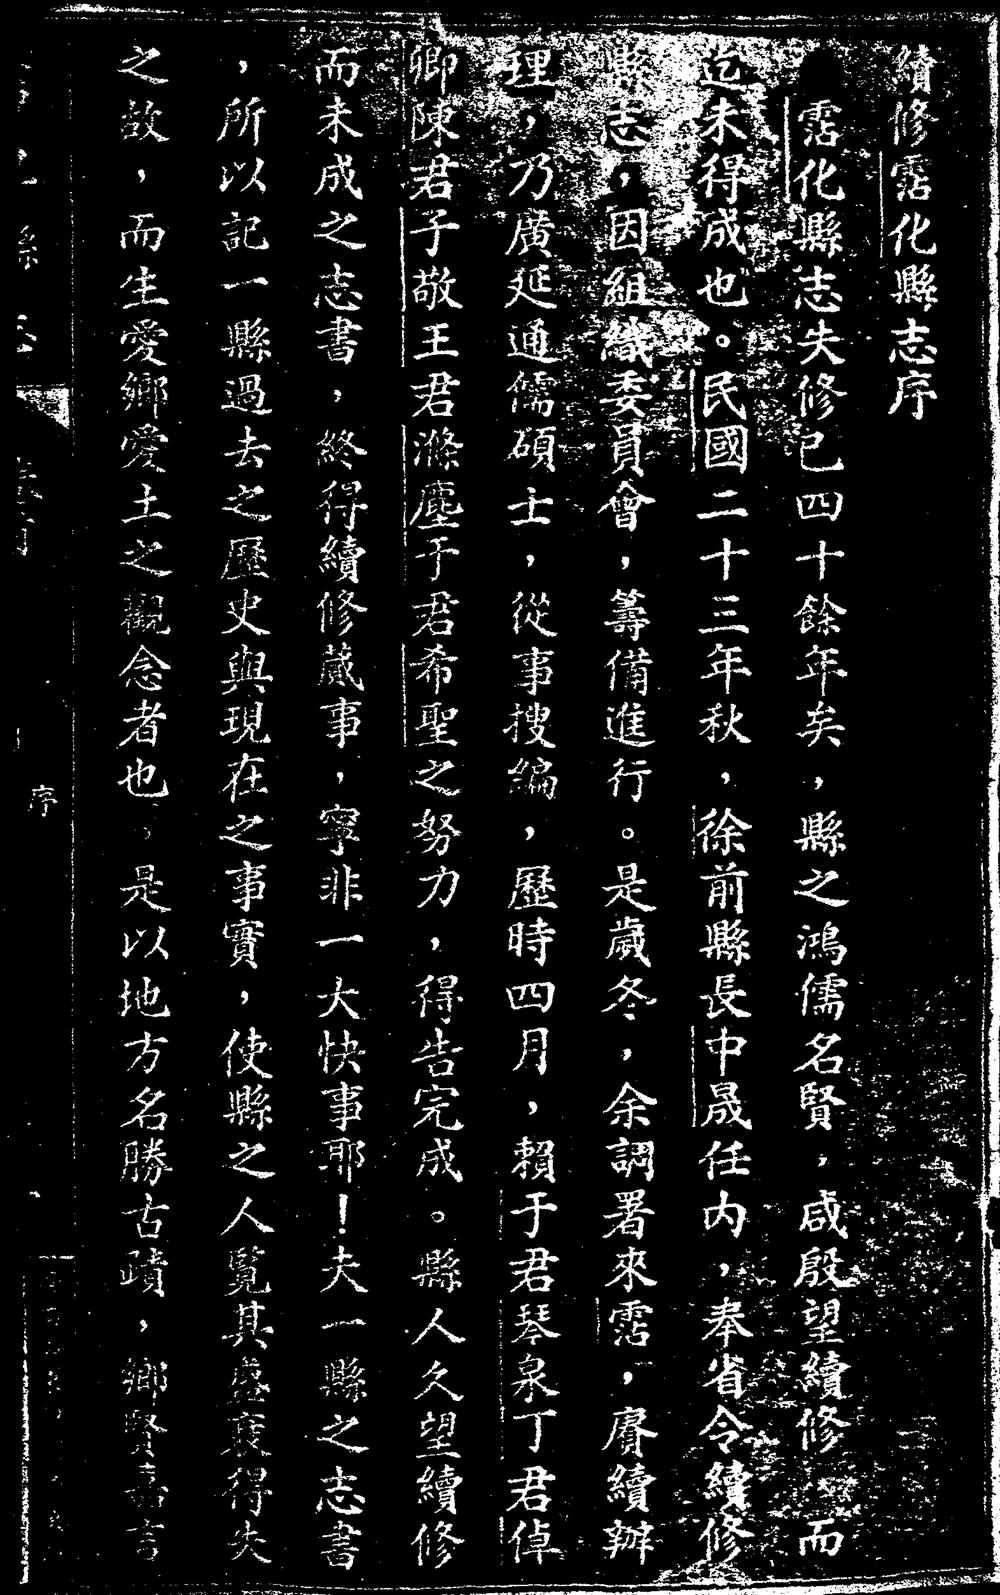 續修霑化縣志序
霑化縣志失修已四十餘年矣，縣之鴻儒名賢，咸殷望續修，而
迄未得成也。民國二十三年秋，徐前縣長中晟任内，奉省令續修
縣志，因組織委員會，籌備進行。是歲冬，余調署來霑，賡續辦
理，乃廣延通儒碩士，從事搜編，歷時四月，賴于君琴泉丁君倬
卿陳君子敬王君滌塵于君希聖之努力，得告完成。縣人久望續修
而未成之志書，終得續修蕆事，寧非一大快事耶！夫一縣之志書
，所以記一縣過去之歷史與現在之事實，使縣之人覽其盛衰得失
之故，而生愛鄉愛土之觀念者也。是以地方名勝古蹟，鄉賢嘉言
序